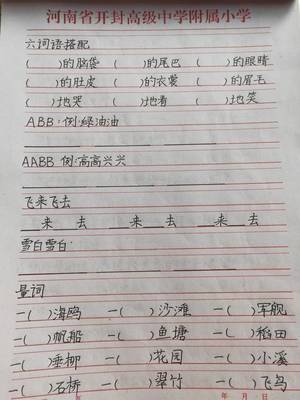 河南省开封高级中学附属小学
六词语搭配
(    )的脑袋 (    )的尾巴 (    )的眼睛
(    )的肚皮 (    )的衣裳 (    )的眉毛
(    )地哭 (    )地看 (    )地笑
ABB:例:绿油油
AABB 例:高高兴兴
飞来飞去
__来__去 __来__去 __来__去
雪白雪白:
量词
一(  )海鸥 一(  )沙滩 一(  )军舰
一(  )帆船 一(  )鱼塘 一(  )稻田
一(  )垂柳 一(  )花园 一(  )小溪
一(  )石桥 一(  )翠竹 一(  )飞鸟
年 月 日